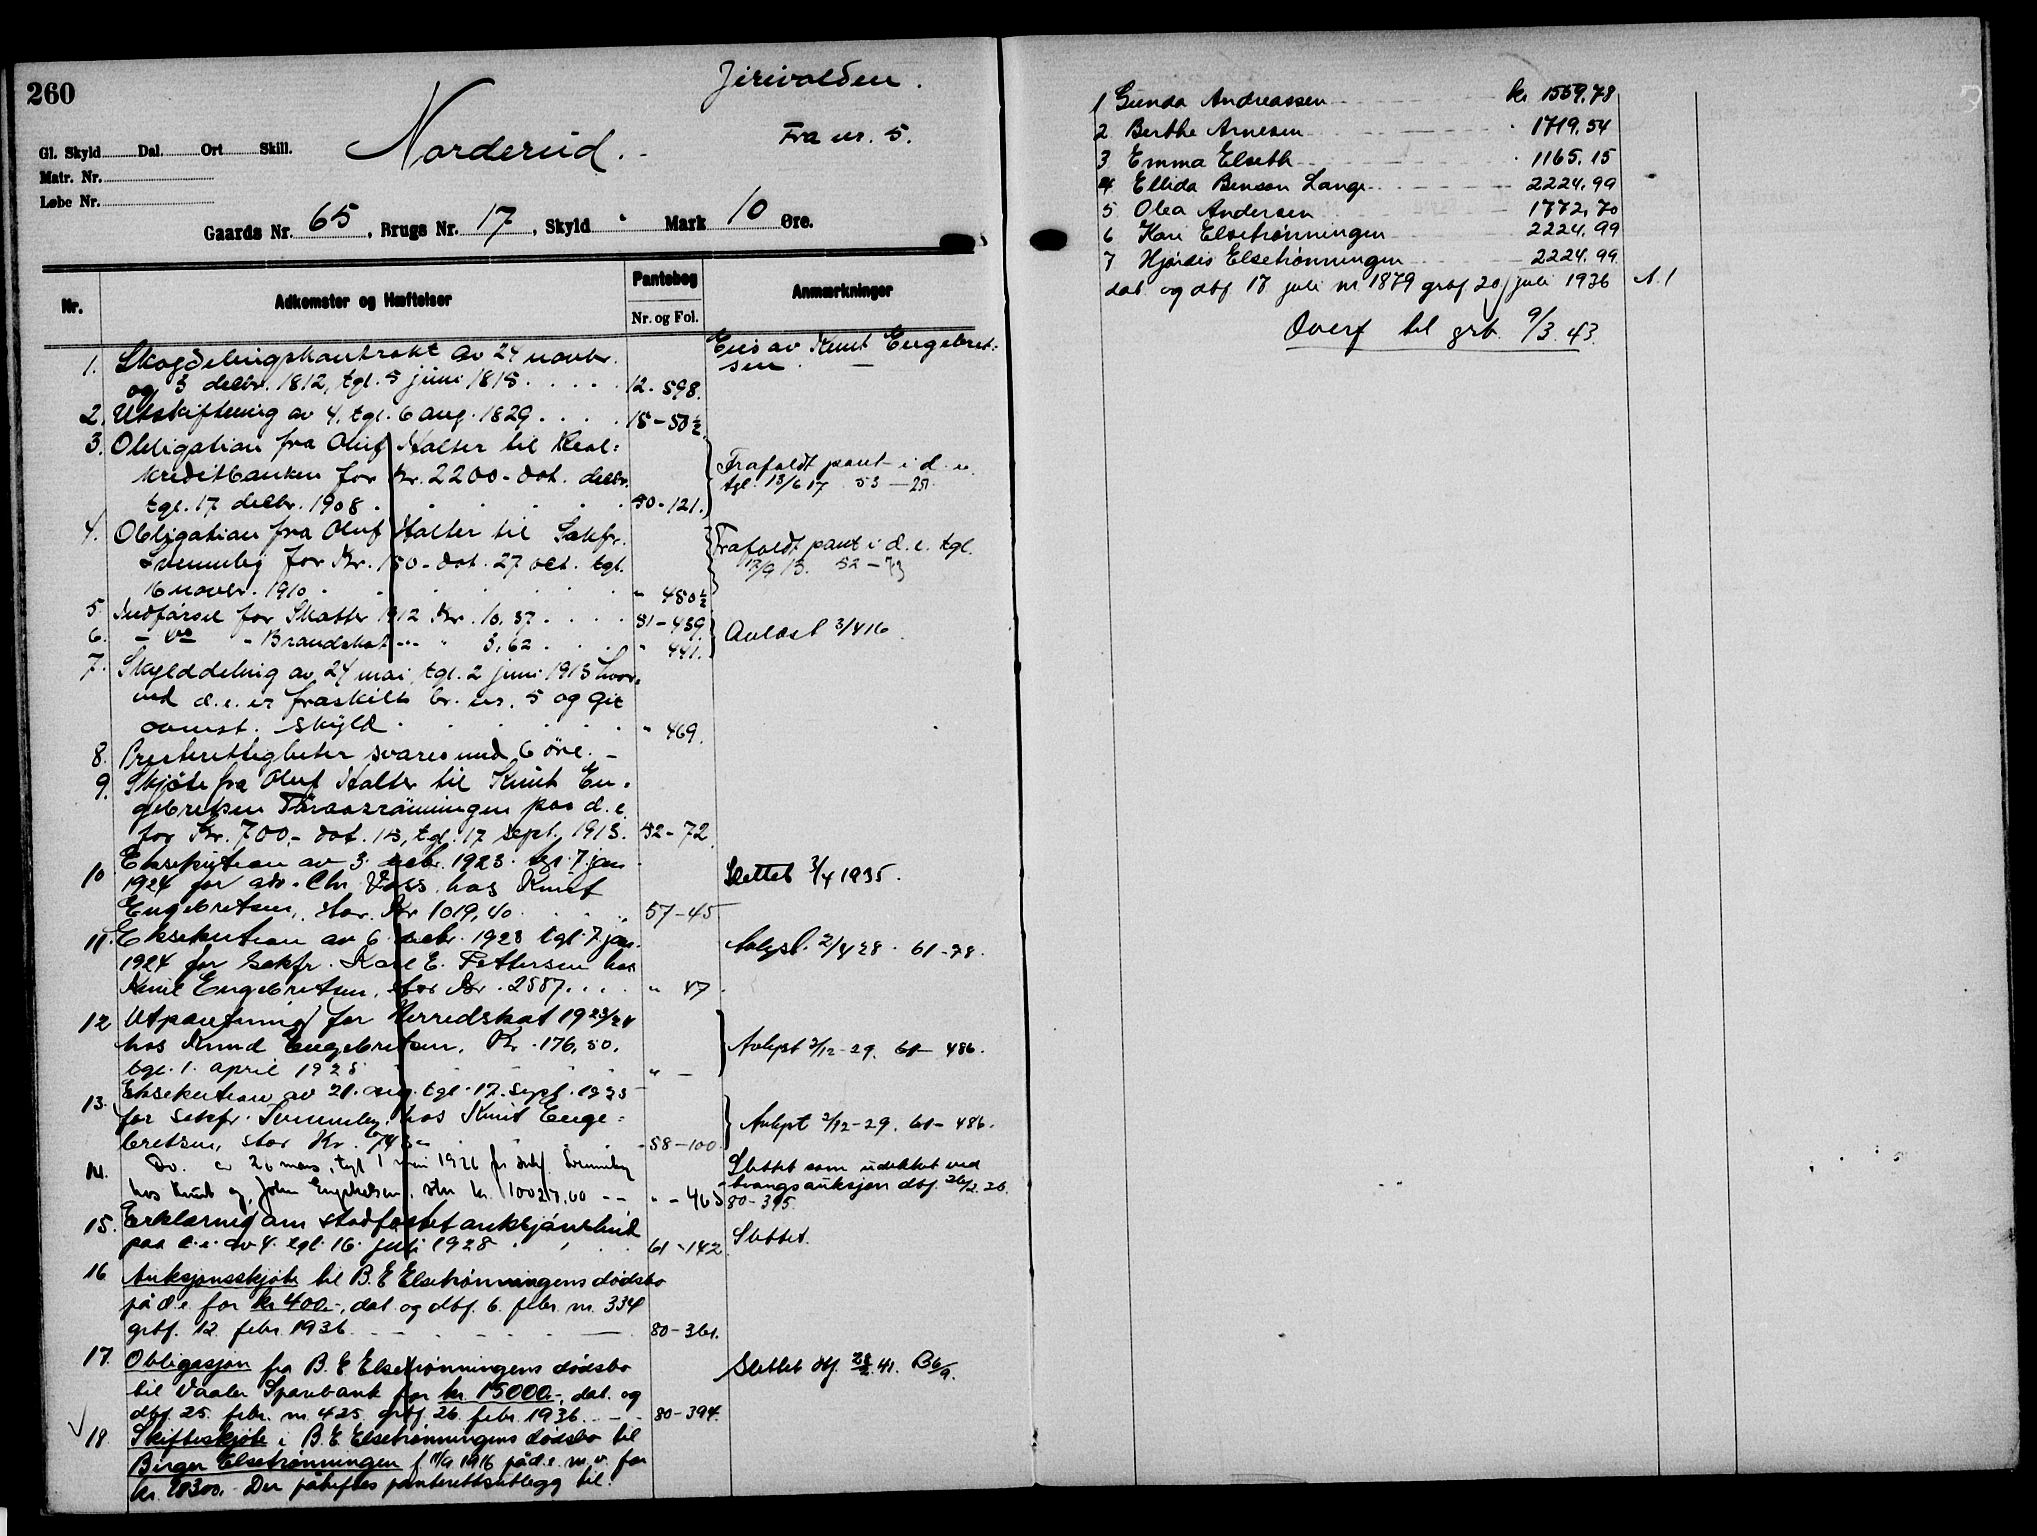 260
Jerivolden.
Norderud.
Fra nr. 5.
Gl. Skyld Dal. Ort Skill.
Matr. Nr.
Løbe Nr.
Gaards Nr. 65, Brugs Nr. 17, Skyld " Mark 10 Øre.
Nr. Adkomster og Hæftelser Pantebog Anmærkninger
Nr. og Fol.
1. Skogdelingskontrakt av 24 novbr. Eies av Knut Engebret-
og 3 decbr. 1812, tgl. 5 juni 1815 12-598. sen.
2. Utskiftning av 4, tgl. 6 aug. 1829 15-50½
3. Obligation fra Oluf Halter til Real-
kreditbanken for Kr. 2200- dat. decbr. Frafaldt pant i d.e.
tgl. 17 decbr. 1908 50-121. tgl. 13/6 17 53-251.
4. Obligation fra Oluf Halter til Sakfr. Frafaldt pant i d.e. tgl.
Svenneby for Kr. 150- dat. 27 oct. tgl. 17/9 13. 52-73
16 novbr. 1910 " 480½
5. Indførsel for Skatter 1912 Kr. 10,37 51-439
6. - Do - Brandskat " " 3,62 " 441. Avlæst 3/4 16
7. Skylddeling av 24 mai, tgl. 2 juni 1913 hvor-
ved d.e. er fraskilt br. nr. 5 og git
ovenst. skyld " 469.
8. Presterettigheter svares med 6 öre. -
9. Skjöte fra Oluf Halter til Knut En-
gebretsen Taraasrønningen paa d.e.
for Kr. 700,- dat. 13, tgl. 17 sept. 1913. 52-72.
10 Eksekution av 3. decbr. 1923 tgl. 7 jan
1924 for adv. Chr. Voss hos Knut Slettet 3/4 1935.
Engebretsen, stor Kr 1019,40 57-45
11. Eksekution av 6. decbr. 1923 tgl. 7 jan.
1924 for Sakfr. Karl E. Pettersen hos Avlyst. 2/4 28. 61-78.
Knut Engebretsen, stor Kr. 2587 " 47
12 Utpantning for Herredskat 1923/24
hos Knud Engebretsen. Kr. 176,50. Avlyst 2/12-29. 61-486.
tgl. 1. april 1925 " -
13. Eksekution av 21. aug. tgl. 17. sept. 1925
for sakfr. Svenneby hos Knut Enge- Avlyst 2/12-29. 61-486.
bretsen, stor Kr. 743- 58-100
14. Do. av 20 mars, tgl 1 mai 1926 for sakf. Svenneby Slettet som udekket ved
hos Knut og John Engebretsen, stor kr. 10027,00 -- " - 463 tvangsauksjon dbf. 26/2 36.
80-395.
15. Erklæring om stadfestet auktjonsbud
paa d.e. av 4. tgl. 16. juli 1928 61-142 Slettet.
16 Auksjonsskjøte til B.E Elsetrønningens dødsbo
på d.e for kr 400.-, dat. og dbf. 6. febr. nr. 334
grbf. 12. febr. 1936 80-361.
17. Obligasjon fra B.E Elsetrønningens dødsbo
til Vaaler Sparebank for kr. 15000.-, dat. og Slettet dbf. 28/2. 41. B6/9.
dbf. 25. febr. nr. 425, grbf. 26. febr. 1936 80-394.
18. Skifteskjøte i B.E. Elsetrønningens dødsbo til
Birger Elsetrønningen f 11/9 1916 på d.e. m.v. for
kr. 28300.- Der påheftes panterettsutlegg til:
1 Gunda Andreassen kr. 1559.78
2 Berthe Arnesen " 1719.54
3 Emma Elseth " 1165.15
4 Ellida Benson Lange 2224.99
5 Olea Andersen 1772.70
6 Kari Elsetrønningen 2224.99
7 Hjørdis Elsetrønningen 2224.99
dat. og dbf 17 juli nr 1879 grbf 20 juli 1936 A.1
Overf til grb. 9/3.43.